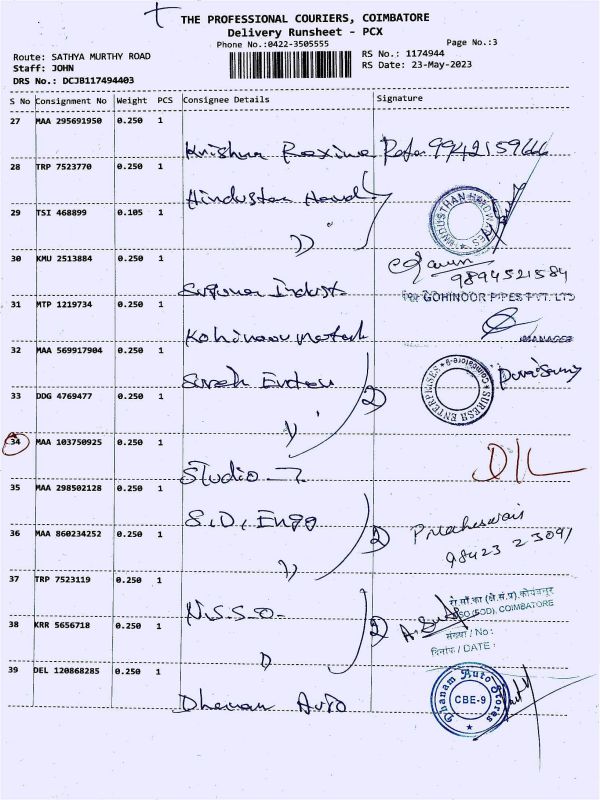 THE PROFESSIONAL COURIERS, COIMBATORE
Delivery Runsheet - PCX
Phone No.:0422-3505555
Page No.:3
Route: SATHYA MURTHY ROAD
RS No.: 1174944
Staff: JOHN
RS Date: 23-May-2023
DRS No.: DCJB117494403
S No Consignment No Weight PCS Consignee Details Signature
27 MAA 295691950 0.250 1
Krishna Rexine 9942159666
28 TRP 7523770 0.250 1
Hindustan Hard
HINDUSTHAN HARDWARES
29 TSI 468899 0.105 1
30 KMU 2513884 0.250 1
9894521584
Indust.
For GOHINOOR PIPES PVT. LTD
31 MTP 1219734 0.250 1
Kohinoor
MANAGER
32 MAA 569917904 0.250 1
Suresh
SURESH ENTERPRISES
Coimbatore-9
33 DDG 4769477 0.250 1
2
34 MAA 103750925 0.250 1
Studio 7
D/L
35 MAA 298502128 0.250 1
S.D. Engg
36 MAA 860234252 0.250 1
2
98423 23091
37 TRP 7523119 0.250 1
N.S.S.O.
COIMBATORE
38 KRR 5656718 0.250 1
2
संख्या / No :
दिनांक / DATE :
39 DEL 120868285 0.250 1
Dhanam Auto
Dhanam Auto Stores
CBE-9